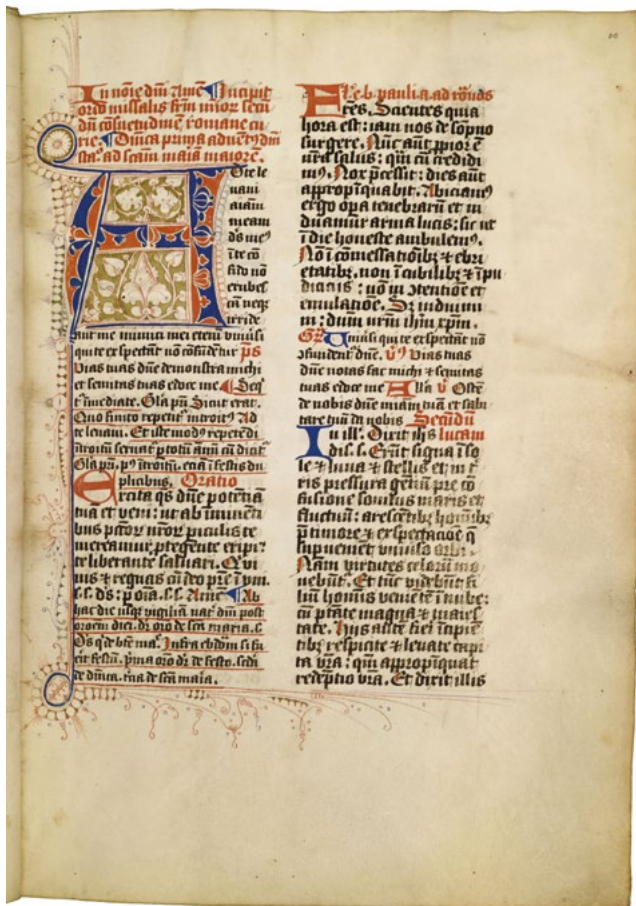 In noīe dm̄ Amē Incipit
ordo missalis frm̄ minor secū
dū cōsuetudinē romane cu
rie. Dn̄ica prima adventꝰ dn̄i
sta. ad scām maiā maiorē.
Ad te le
vavi
aīam
meam
ds̄ meꝰ
ī te cō
fido nō
erubes
cā neqꝫ
irride
ant me inimici mei eteni ūnīusi
qui te exspectāt nō cōfūdētur ps
Vias tuas dn̄e demonstra michi
et semitas tuas edoce me Seq̄
t̄ īmediate. Gl̄a pri Sicut erat.
Quo finito repetit̄ introitꝰ Ad
te levavi. Et iste modꝰ repetēdi
ītroitū servat̄ p totū annū cū dicit̄
Gl̄a pri. pꝰ ītroitū. etiā ī festis du
plicibus. Oratio
Excita qs̄ dn̄e potētiā
tuā et veni: ut ab īminēti
bus pctōꝝ nr̄oꝝ piculis te
mereamur ptegente eripi:
te liberante salvari. Qui
vivis et regnas cū deo pre ī unī.
s.s. ds̄: p oīa. s.s. Amē Ab
hac die usqꝫ vigiliā nat̄ dn̄i post
orōem diei. dr̄ orō de scā maria. s.
Ds̄ q de btē ma. Infra ebdōm si fu
erit festū. pīma orō dr̄ de festo. secū
de dn̄ica. t̄cia de scā maia.
Lc̄ e. b. pauli a. ad rōnos
Fr̄es. Scientes quia
hora est: iam nos de sopno
surgere. Nūc aūt ppior ē
nr̄a salus: quā cū credidi
mꝰ. Nox p̄cessit: dies aūt
appropīquabit. Abiciamꝰ
ergo opa tenebrarū et in
duamur arma lucis: sic ut
ī die honeste ambulemꝰ.
Nō ī cōmessatiōibꝫ ⁊ ebri
etatibꝫ. non ī cubilibꝫ ⁊ īpu
diciciis: nō in ɔtentiōe et
emulatiōe. Sꝫ indumi
ni: dn̄m nr̄m ihm̄ xp̄m.
Gr̄ Univsi qui te exspectāt nō
ɔfundent̄ dn̄e. v̄ Vias tuas
dn̄e notas fac michi ⁊ semitas
tuas edoce me All̄a v̄ Ostē
de nobis dn̄e miam̄ tuā et salu
tare tuū da nobis Secūdū
In ill̄. Dixit ih̄s lucam
dis. s. Erūt signa ī so
le ⁊ luna ⁊ stellis et in t̄
ris pressura gētiū pre cō
fusione sonitus maris et
fluctuū: arescētibꝫ hoīnibꝫ
p timore ⁊ exspectatiōe q̄
supveniēt univso orbi.
Nam virtutes celorū mo
vebūt̄. Et tūc videbūt fi
liū hoīnis veniētē ī nube:
cū ptāte magna ⁊ maies
tate. Hiis aūtē fieri īcipiē
tibꝫ respicite ⁊ levate capi
ta vr̄a: qm̄ appropīquat
redēptio vr̄a. Et dixit illis